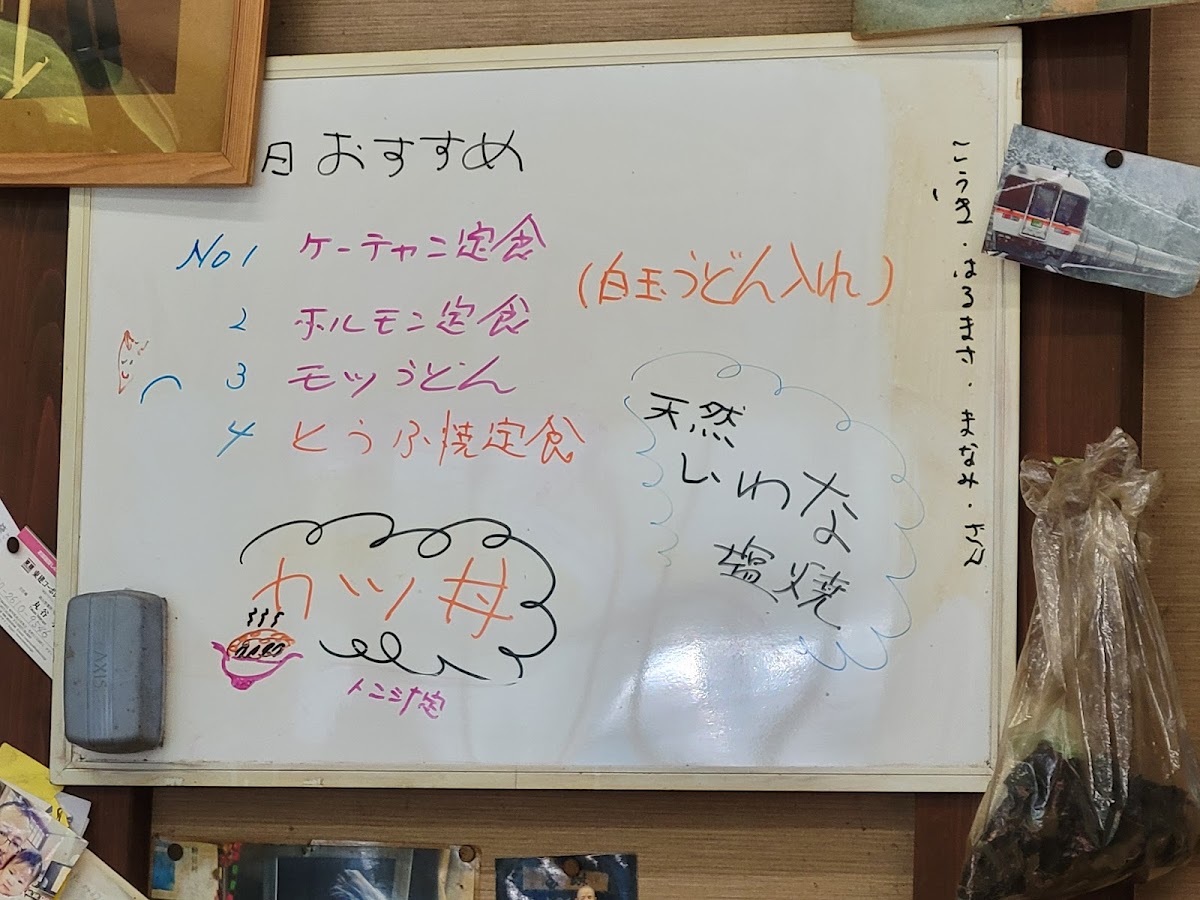 日おすすめ
No1 ケーチャン定食
(白玉うどん入れ)
2 ホルモン定食
3 モツうどん
4 とうふ焼定食
天然
いわな
塩焼
カツ丼
こうき・はるまさ・まなみ・ざん
AXIS